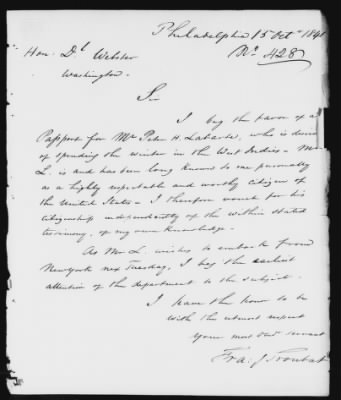 Philadelphia 15 Octr 1841
Hon. Dl Webster No 428
Washington.
Sir
I beg the favor of a
Passport for Mr Peter H. Labarte, who is desirous
of spending the winter in the West Indies - Mr
L. is and has been long known to me personally
as a highly reputable and worthy citizen of
the United States - I therefore vouch for his
citizenship independently of the within stated
testimony, of my own knowledge.
As Mr L. wishes to embark from
New York next Tuesday, I beg the earliest
attention of the department to the subject.
I have the honor to be
with the utmost respect
your most obdt servant
Fra. J. Troubat